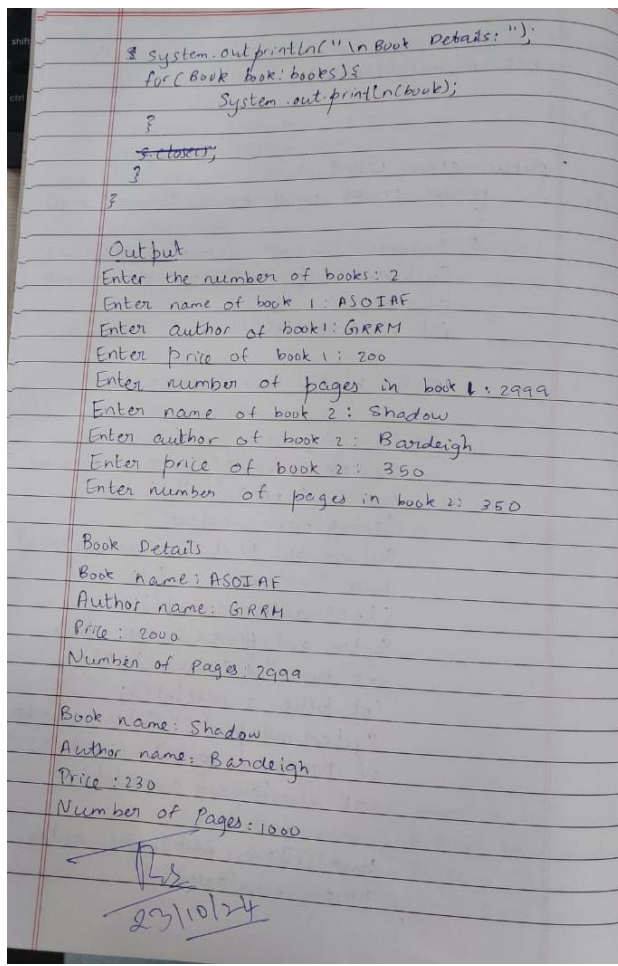 System.out println("\n Book Details: ");
for (Book book: books) {
System.out.println(book);
}
s.close();
}
}
Output
Enter the number of books: 2
Enter name of book 1: ASOIAF
Enter author of book1: GRRM
Enter price of book 1: 200
Enter number of pages in book 1: 2999
Enter name of book 2: Shadow
Enter author of book 2: Bardeigh
Enter price of book 2: 350
Enter number of pages in book 2: 350
Book Details
Book name: ASOIAF
Author name: GRRM
Price: 2000
Number of pages: 2999
Book name: Shadow
Author name: Bardeigh
Price: 230
Number of Pages: 1000
23/10/24
shift
ctrl